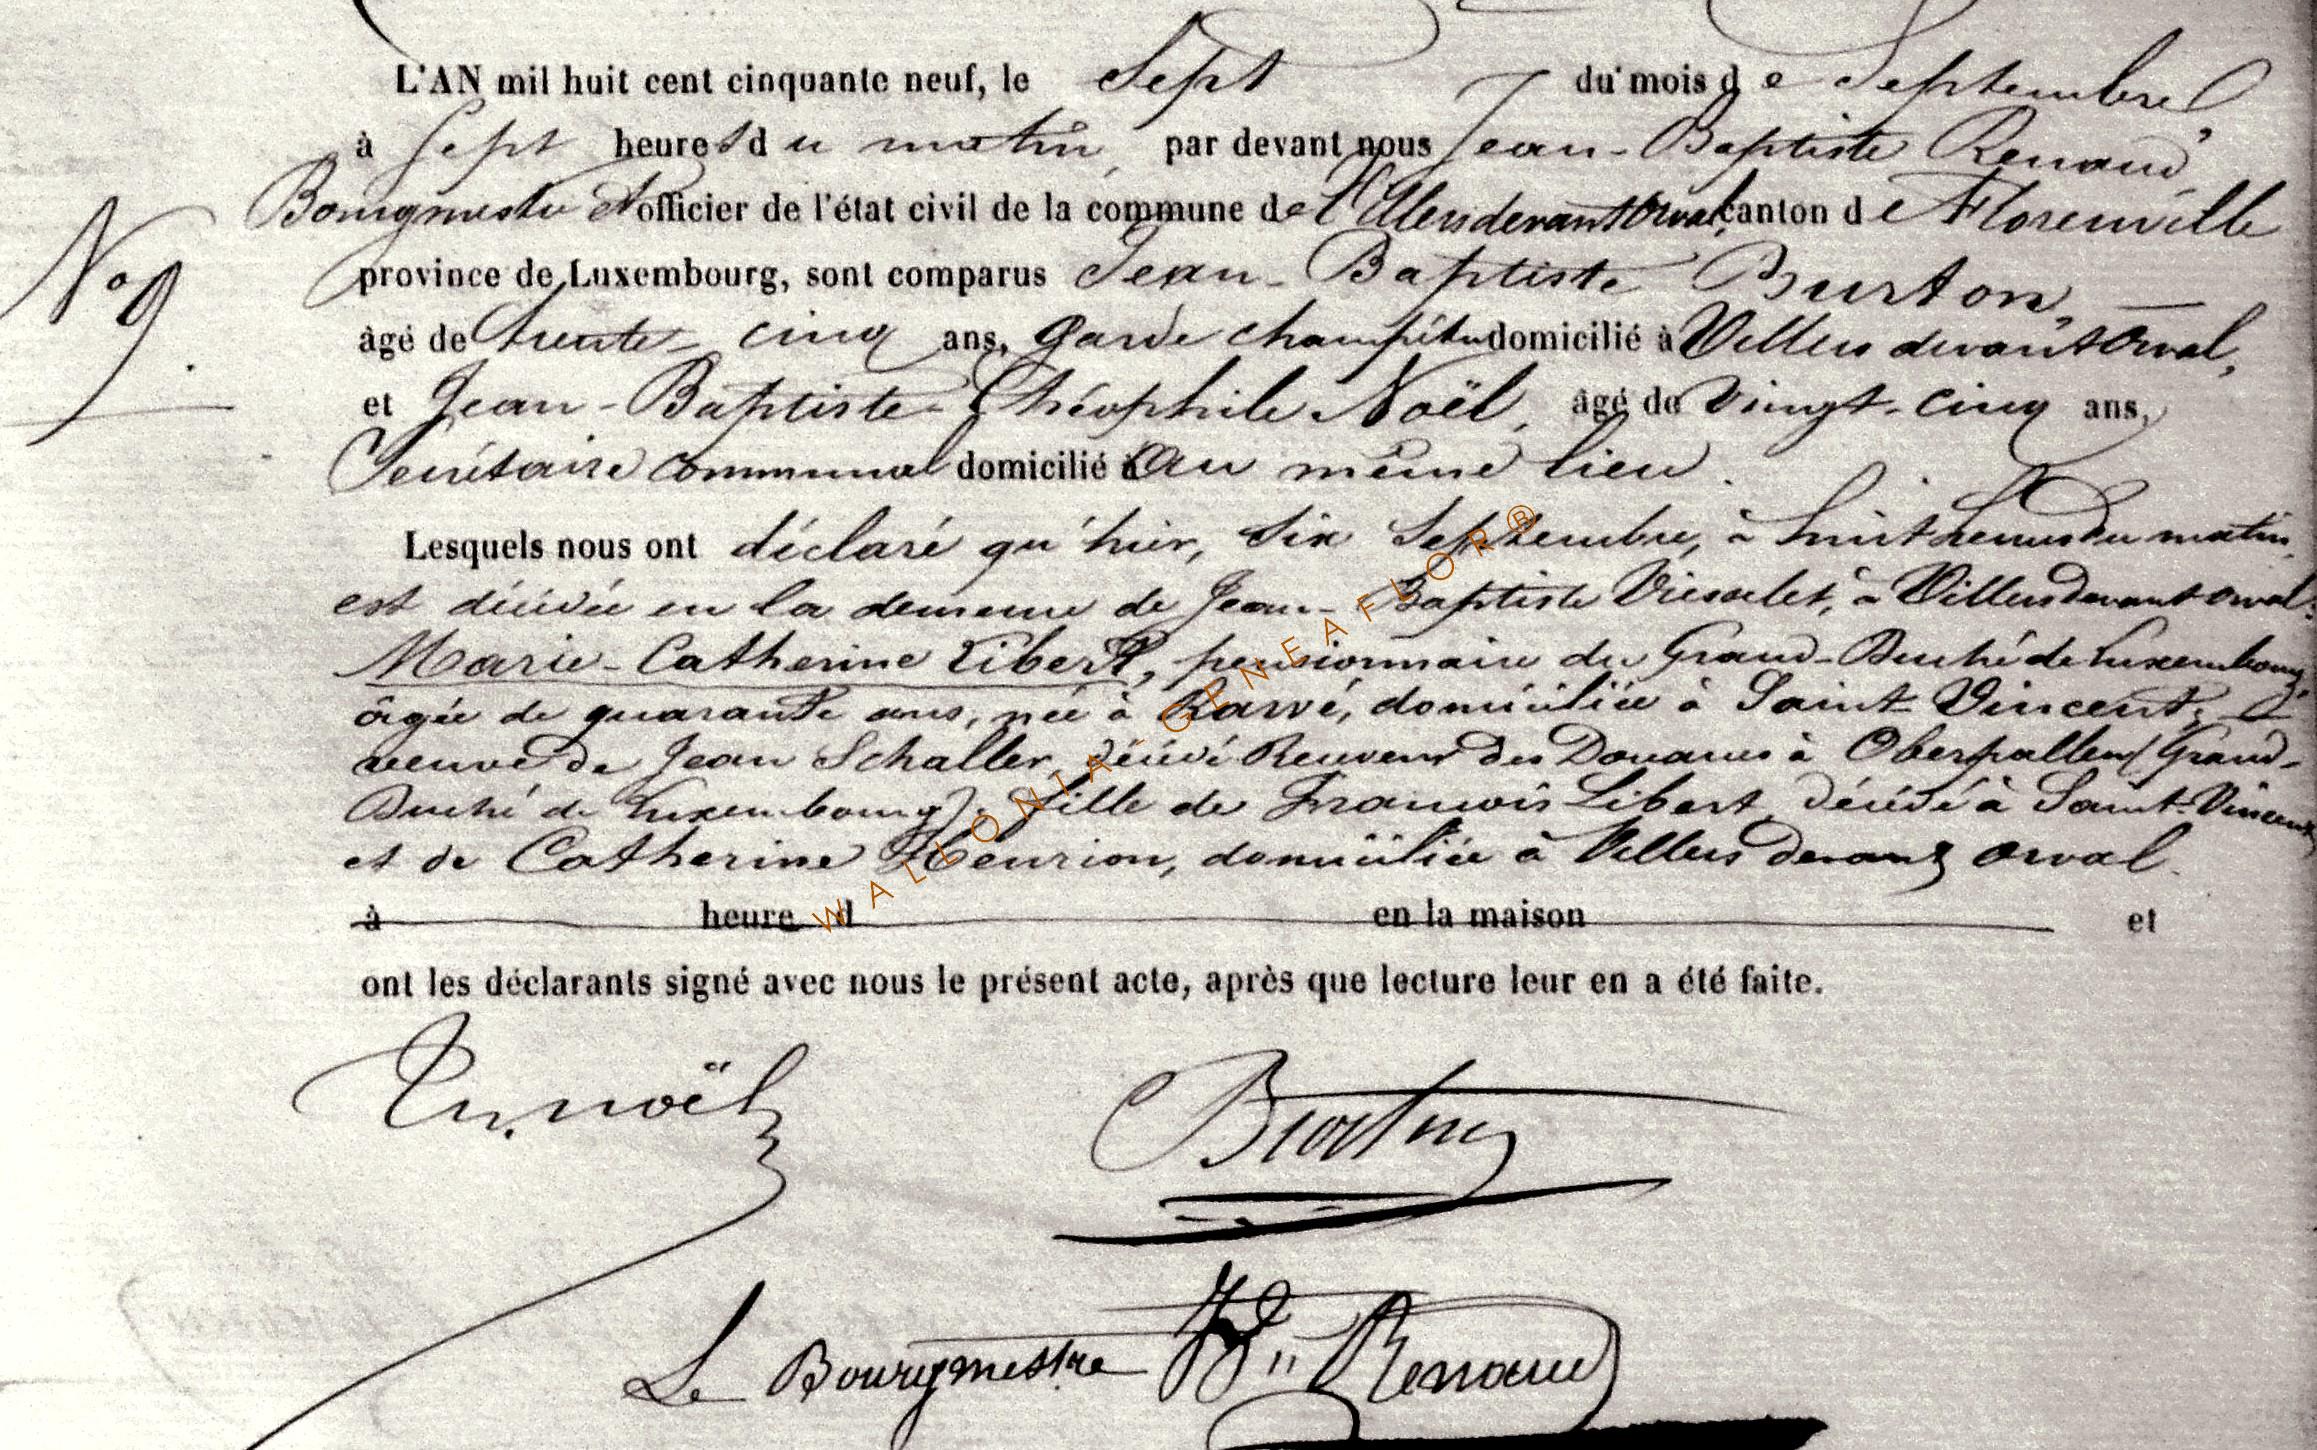 L'AN mil huit cent cinquante neuf, le Sept du mois de Septembre
à Sept heures du matin, par devant nous Jean-Baptiste Renaud,
Bourgmestre et officier de l'état civil de la commune de Villers devant Orval, canton de Florenville
N° 9.
province de Luxembourg, sont comparus Jean-Baptiste Burton, —
âgé de trente-cinq ans, Garde champêtre domicilié à Villers devant Orval,
et Jean-Baptiste-Théophile Noël, âgé de Vingt-cinq ans,
Secrétaire communal domicilié à Au même lieu.
Lesquels nous ont déclaré qu'hier, six Septembre, à huit heures du matin,
est décédée en la demeure de Jean-Baptiste à Villers devant Orval,
Marie-Catherine Libert, pensionnaire du Grand-Duché de Luxembourg,
âgée de quarante ans, née à domiciliée à Saint-Vincent,
veuve de Jean Schaller, décédé Receveur des Douanes à Oberpallen (Grand-
Duché de Luxembourg), fille de François Libert, décédé à Saint-Vincent,
et de Catherine Henrion, domiciliée à Villers devant Orval.
à heure d en la maison et
ont les déclarants signé avec nous le présent acte, après que lecture leur en a été faite.
Th. Noël Burton
Le Bourgmestre Renaud
WALLONIA-GENEAFLOR®